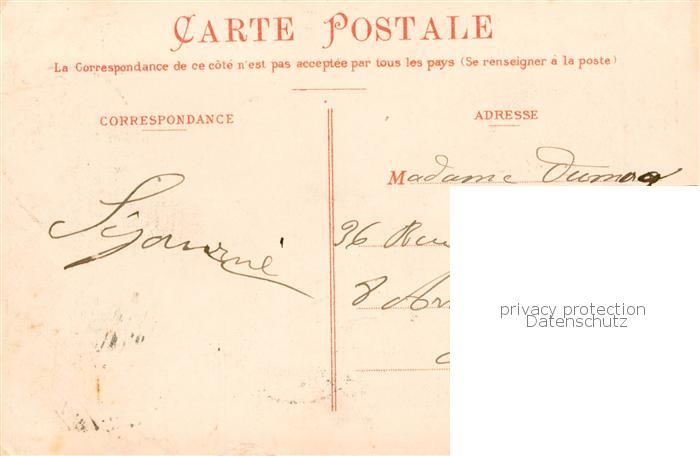 CARTE POSTALE
La Correspondance de ce côté n'est pas acceptée par tous les pays (Se renseigner à la poste)
CORRESPONDANCE
Séjourné
ADRESSE
Madame
36 Rue
8 Arr
privacy protection
Datenschutz